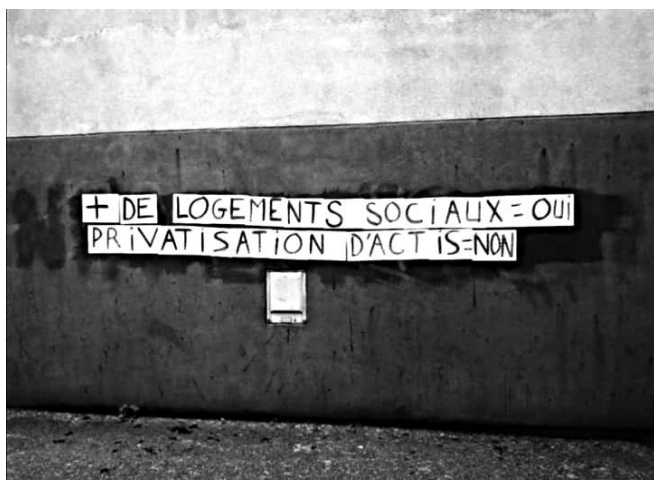 + DE LOGEMENTS SOCiAUX = OUi
PRiVATiSATiON D'ACTiS=NON